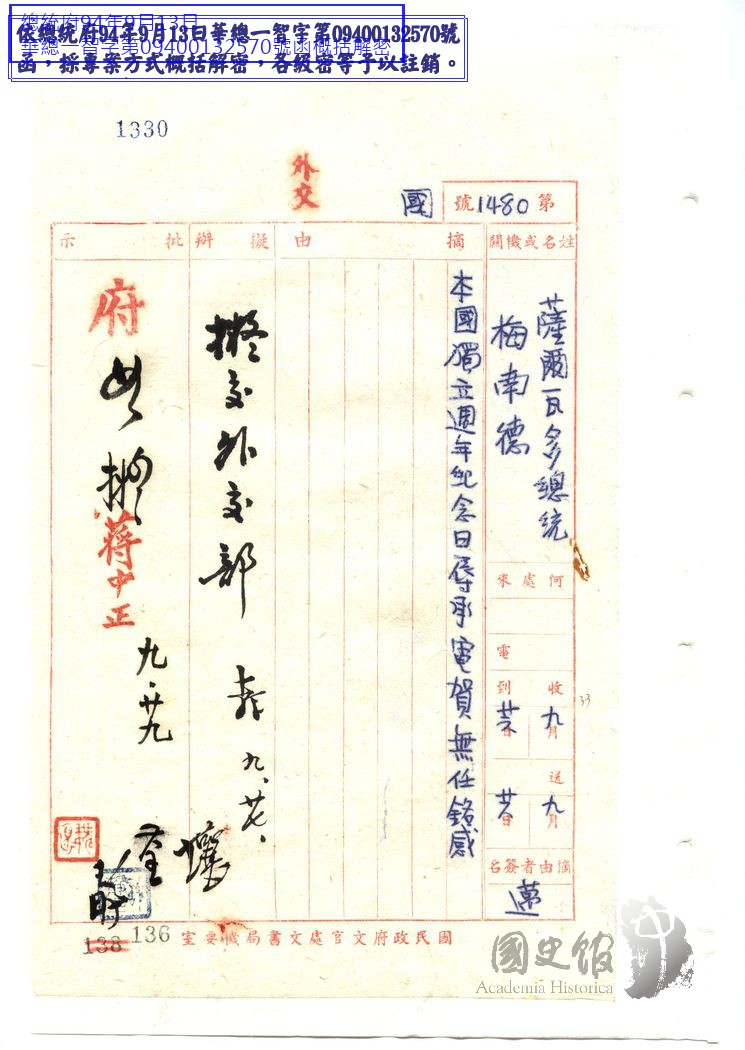 總統府94年9月13日
華總一智字第09400132570號函概括解密
依總統府94年9月13日華總一智字第09400132570號
函,採專案方式概括解密,各級密等予以註銷。
1330
外交
國
第1480號
姓名或機關
薩爾瓦多總統
梅南德
何處來
電
收到
九月
日
送
九月
日
摘由者簽名
摘由
本國獨立週年紀念日辱承電賀無任銘感
擬辦
擬交外交部
九、廿七、
批示
府
如擬
蔣中正
九、廿九
國民政府文官處文書局機要室
136
138
33
國史館
Academia Historica